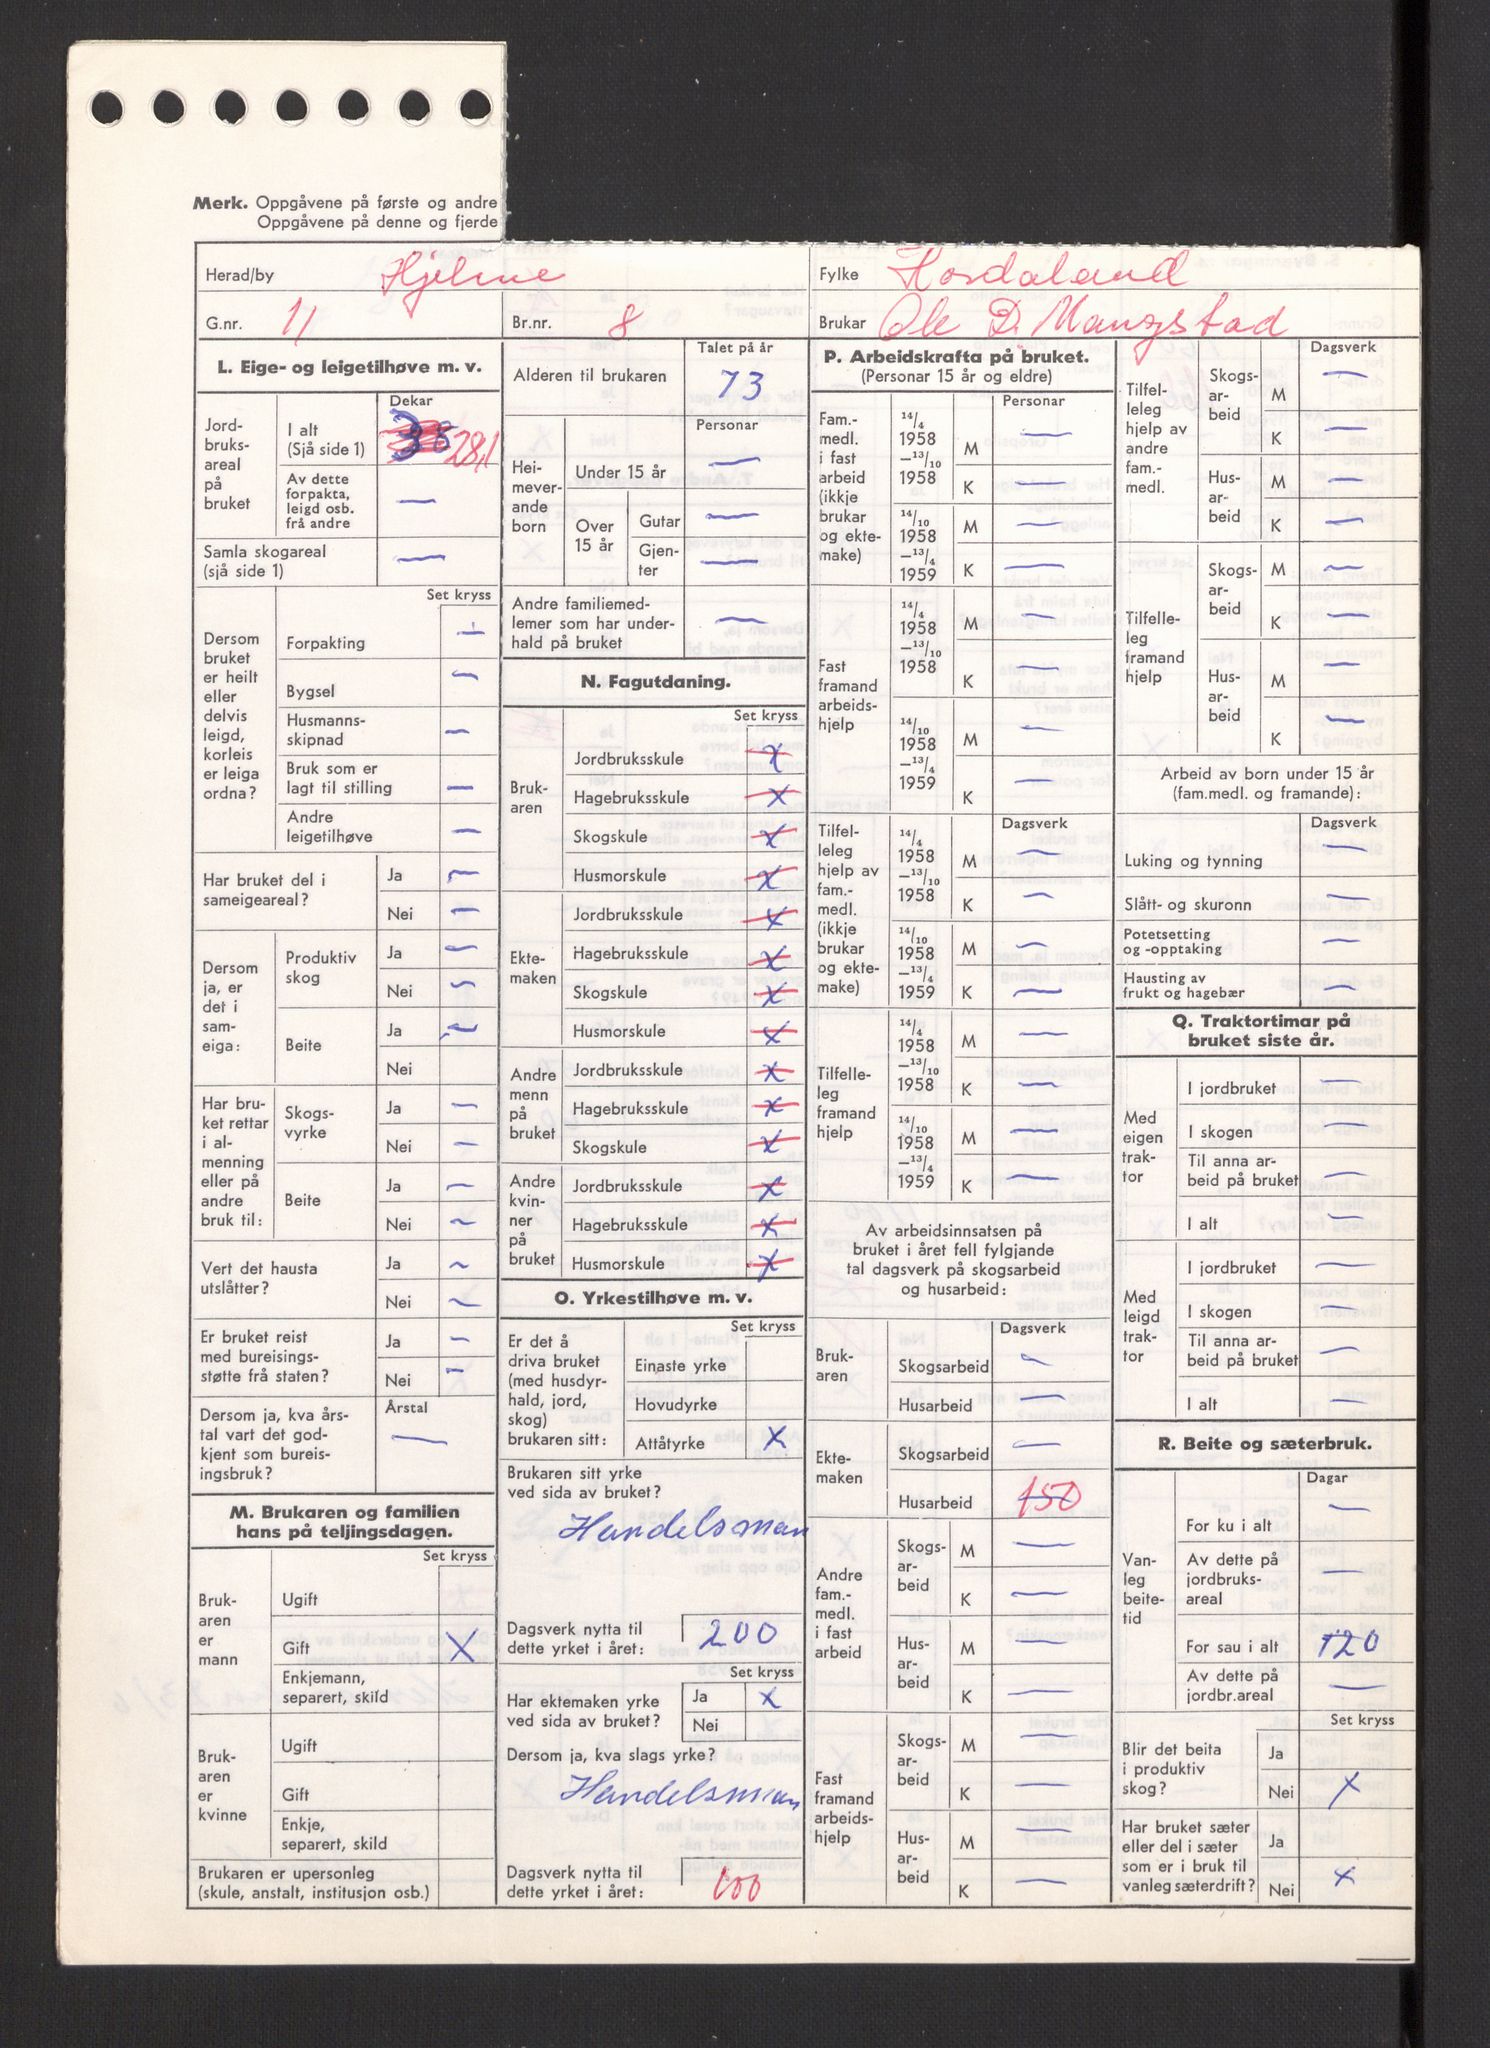 Merk. Oppgåvene på første og andre
Oppgåvene på denne og fjerde
Herad/by Hjelme
Fylke Hordaland
G.nr. 11
Br.nr. 8
Brukar Ole D. Mangstad
L. Eige- og leigetilhøve m. v.
Dekar
Jord-
bruks-
areal
på
bruket
I alt
(Sjå side 1)
28,1
Av dette
forpakta,
leigd osb.
frå andre —
Samla skogareal
(sjå side 1) —
Set kryss
Dersom
bruket
er heilt
eller
delvis
leigd,
korleis
er leiga
ordna?
Forpakting —
Bygsel —
Husmanns-
skipnad —
Bruk som er
lagt til stilling —
Andre
leigetilhøve —
Har bruket del i
sameigeareal?
Ja —
Nei —
Dersom
ja, er
det i
sam-
eiga:
Produktiv
skog
Ja —
Nei —
Beite
Ja —
Nei
Har bru-
ket rettar
i al-
menning
eller på
andre
bruk til:
Skogs-
vyrke
Ja —
Nei —
Beite
Ja —
Nei —
Vert det hausta
utslåtter?
Ja —
Nei —
Er bruket reist
med bureisings-
støtte frå staten?
Ja —
Nei —
Dersom ja, kva års-
tal vart det god-
kjent som bureis-
ingsbruk?
Årstal
—
M. Brukaren og familien
hans på teljingsdagen.
Set kryss
Bruk-
aren
er
mann
Ugift
Gift X
Enkjemann,
separert, skild
Bruk-
aren
er
kvinne
Ugift
Gift
Enkje,
separert, skild
Brukaren er upersonleg
(skule, anstalt, institusjon osb.)
Talet på år
Alderen til brukaren 73
Personar
Hei-
mever-
ande
born
Under 15 år —
Over
15 år
Gutar —
Gjen-
ter —
Andre familiemed-
lemer som har under-
hald på bruket —
N. Fagutdaning.
Set kryss
Bruk-
aren
Jordbruksskule x
Hagebruksskule x
Skogskule x
Husmorskule x
Ekte-
maken
Jordbruksskule x
Hagebruksskule x
Skogskule x
Husmorskule x
Andre
menn
på
bruket
Jordbruksskule x
Hagebruksskule x
Skogskule x
Andre
kvin-
ner
på
bruket
Jordbruksskule x
Hagebruksskule x
Husmorskule x
O. Yrkestilhøve m. v.
Set kryss
Er det å
driva bruket
(med husdyr-
hald, jord,
skog)
brukaren sitt:
Einaste yrke
Hovudyrke
Attåtyrke X
Brukaren sitt yrke
ved sida av bruket?
Handelsman
Dagsverk nytta til
dette yrket i året: 200
Set kryss
Har ektemaken yrke
ved sida av bruket?
Ja x
Nei
Dersom ja, kva slags yrke?
Handelsman
Dagsverk nytta til
dette yrket i året: 100
P. Arbeidskrafta på bruket.
(Personar 15 år og eldre)
Personar
Fam.-
medl.
i fast
arbeid
(ikkje
brukar
og ekte-
make)
14/4
1958
—13/10
1958
M —
K —
14/10
1958
—13/4
1959
M —
K —
Fast
framand
arbeids-
hjelp
14/4
1958
—13/10
1958
M —
K —
14/10
1958
—13/4
1959
M —
K —
Dagsverk
Tilfel-
leleg
hjelp av
fam.-
medl.
(ikkje
brukar
og ekte-
make)
14/4
1958
—13/10
1958
M —
K —
14/10
1958
—13/4
1959
M —
K —
Tilfelle-
leg
framand
hjelp
14/4
1958
—13/10
1958
M —
K —
14/10
1958
—13/4
1959
M —
K —
Av arbeidsinnsatsen på
bruket i året fell fylgjande
tal dagsverk på skogsarbeid
og husarbeid:
Dagsverk
Bruk-
aren
Skogsarbeid —
Husarbeid —
Ekte-
maken
Skogsarbeid —
Husarbeid 150
Andre
fam.-
medl.
i fast
arbeid
Skogs-
ar-
beid
M —
K —
Hus-
ar-
beid
M —
K —
Fast
framand
arbeids-
hjelp
Skogs-
ar-
beid
M —
K —
Hus-
ar-
beid
M —
K —
Dagsverk
Tilfel-
leleg
hjelp av
andre
fam.-
medl.
Skogs-
ar-
beid
M —
K —
Hus-
ar-
beid
M —
K —
Tilfelle-
leg
framand
hjelp
Skogs-
ar-
beid
M —
K —
Hus-
ar-
beid
M —
K —
Arbeid av born under 15 år
(fam.medl. og framande):
Dagsverk
Luking og tynning —
Slått- og skuronn —
Potetsetting
og -opptaking —
Hausting av
frukt og hagebær —
Q. Traktortimar på
bruket siste år.
Med
eigen
trak-
tor
I jordbruket —
I skogen —
Til anna ar-
beid på bruket —
I alt —
Med
leigd
trak-
tor
I jordbruket —
I skogen —
Til anna ar-
beid på bruket —
I alt —
R. Beite og sæterbruk.
Dagar
Van-
leg
beite-
tid
For ku i alt —
Av dette på
jordbruks-
areal —
For sau i alt 120
Av dette på
jordbr.areal —
Set kryss
Blir det beita
i produktiv
skog?
Ja
Nei x
Har bruket sæter
eller del i sæter
som er i bruk til
vanleg sæterdrift?
Ja
Nei x